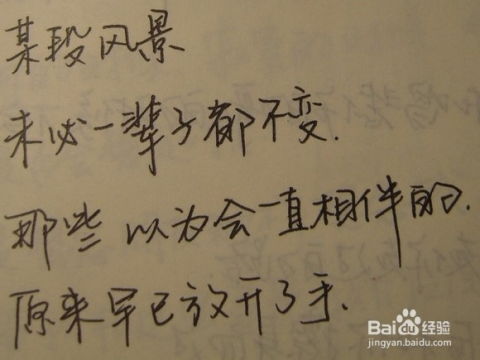 某段风景
未必一辈子都不变.
那些以为会一直相伴的.
原来早已放开了手.
Baidu经验
jingyan.baidu.com